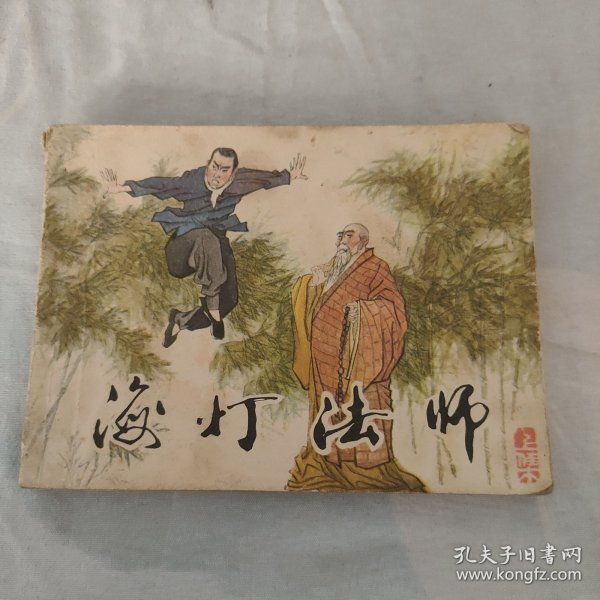 海灯法师
孔夫子旧书网
www.kongfz.com